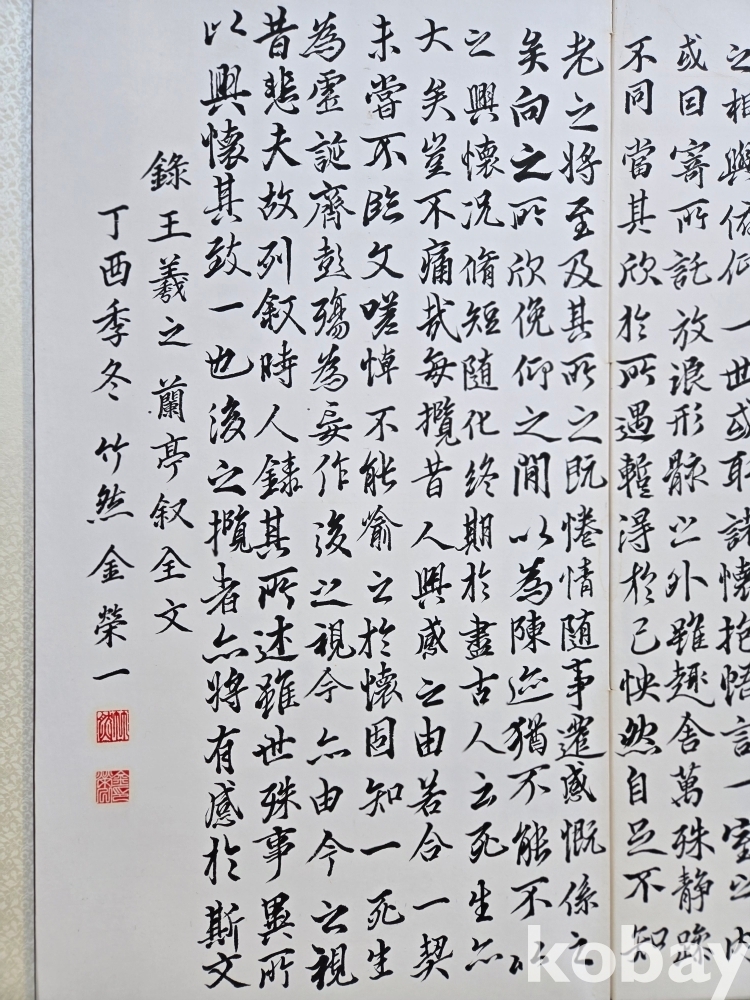 之相與俯仰一世或取諸懷抱悟言一室之內
或因寄所託放浪形骸之外雖趣舍萬殊静躁
不同當其欣於所遇蹔得於己怏然自足不知
老之將至及其所之既惓情随事遷感慨係之
矣向之所欣俛仰之閒以為陳迹猶不能不以
之興懷況脩短随化終期於盡古人云死生亦
大矣豈不痛哉每攬昔人興感之由若合一契
未嘗不臨文嗟悼不能喻之於懷固知一死生
為虛誕齊彭殤為妄作後之視今亦由今之視
昔悲夫故列叙時人錄其所述雖世殊事異所
以興懷其致一也後之攬者亦將有感於斯文
錄王羲之蘭亭叙全文
丁酉季冬竹然金榮一
kobay